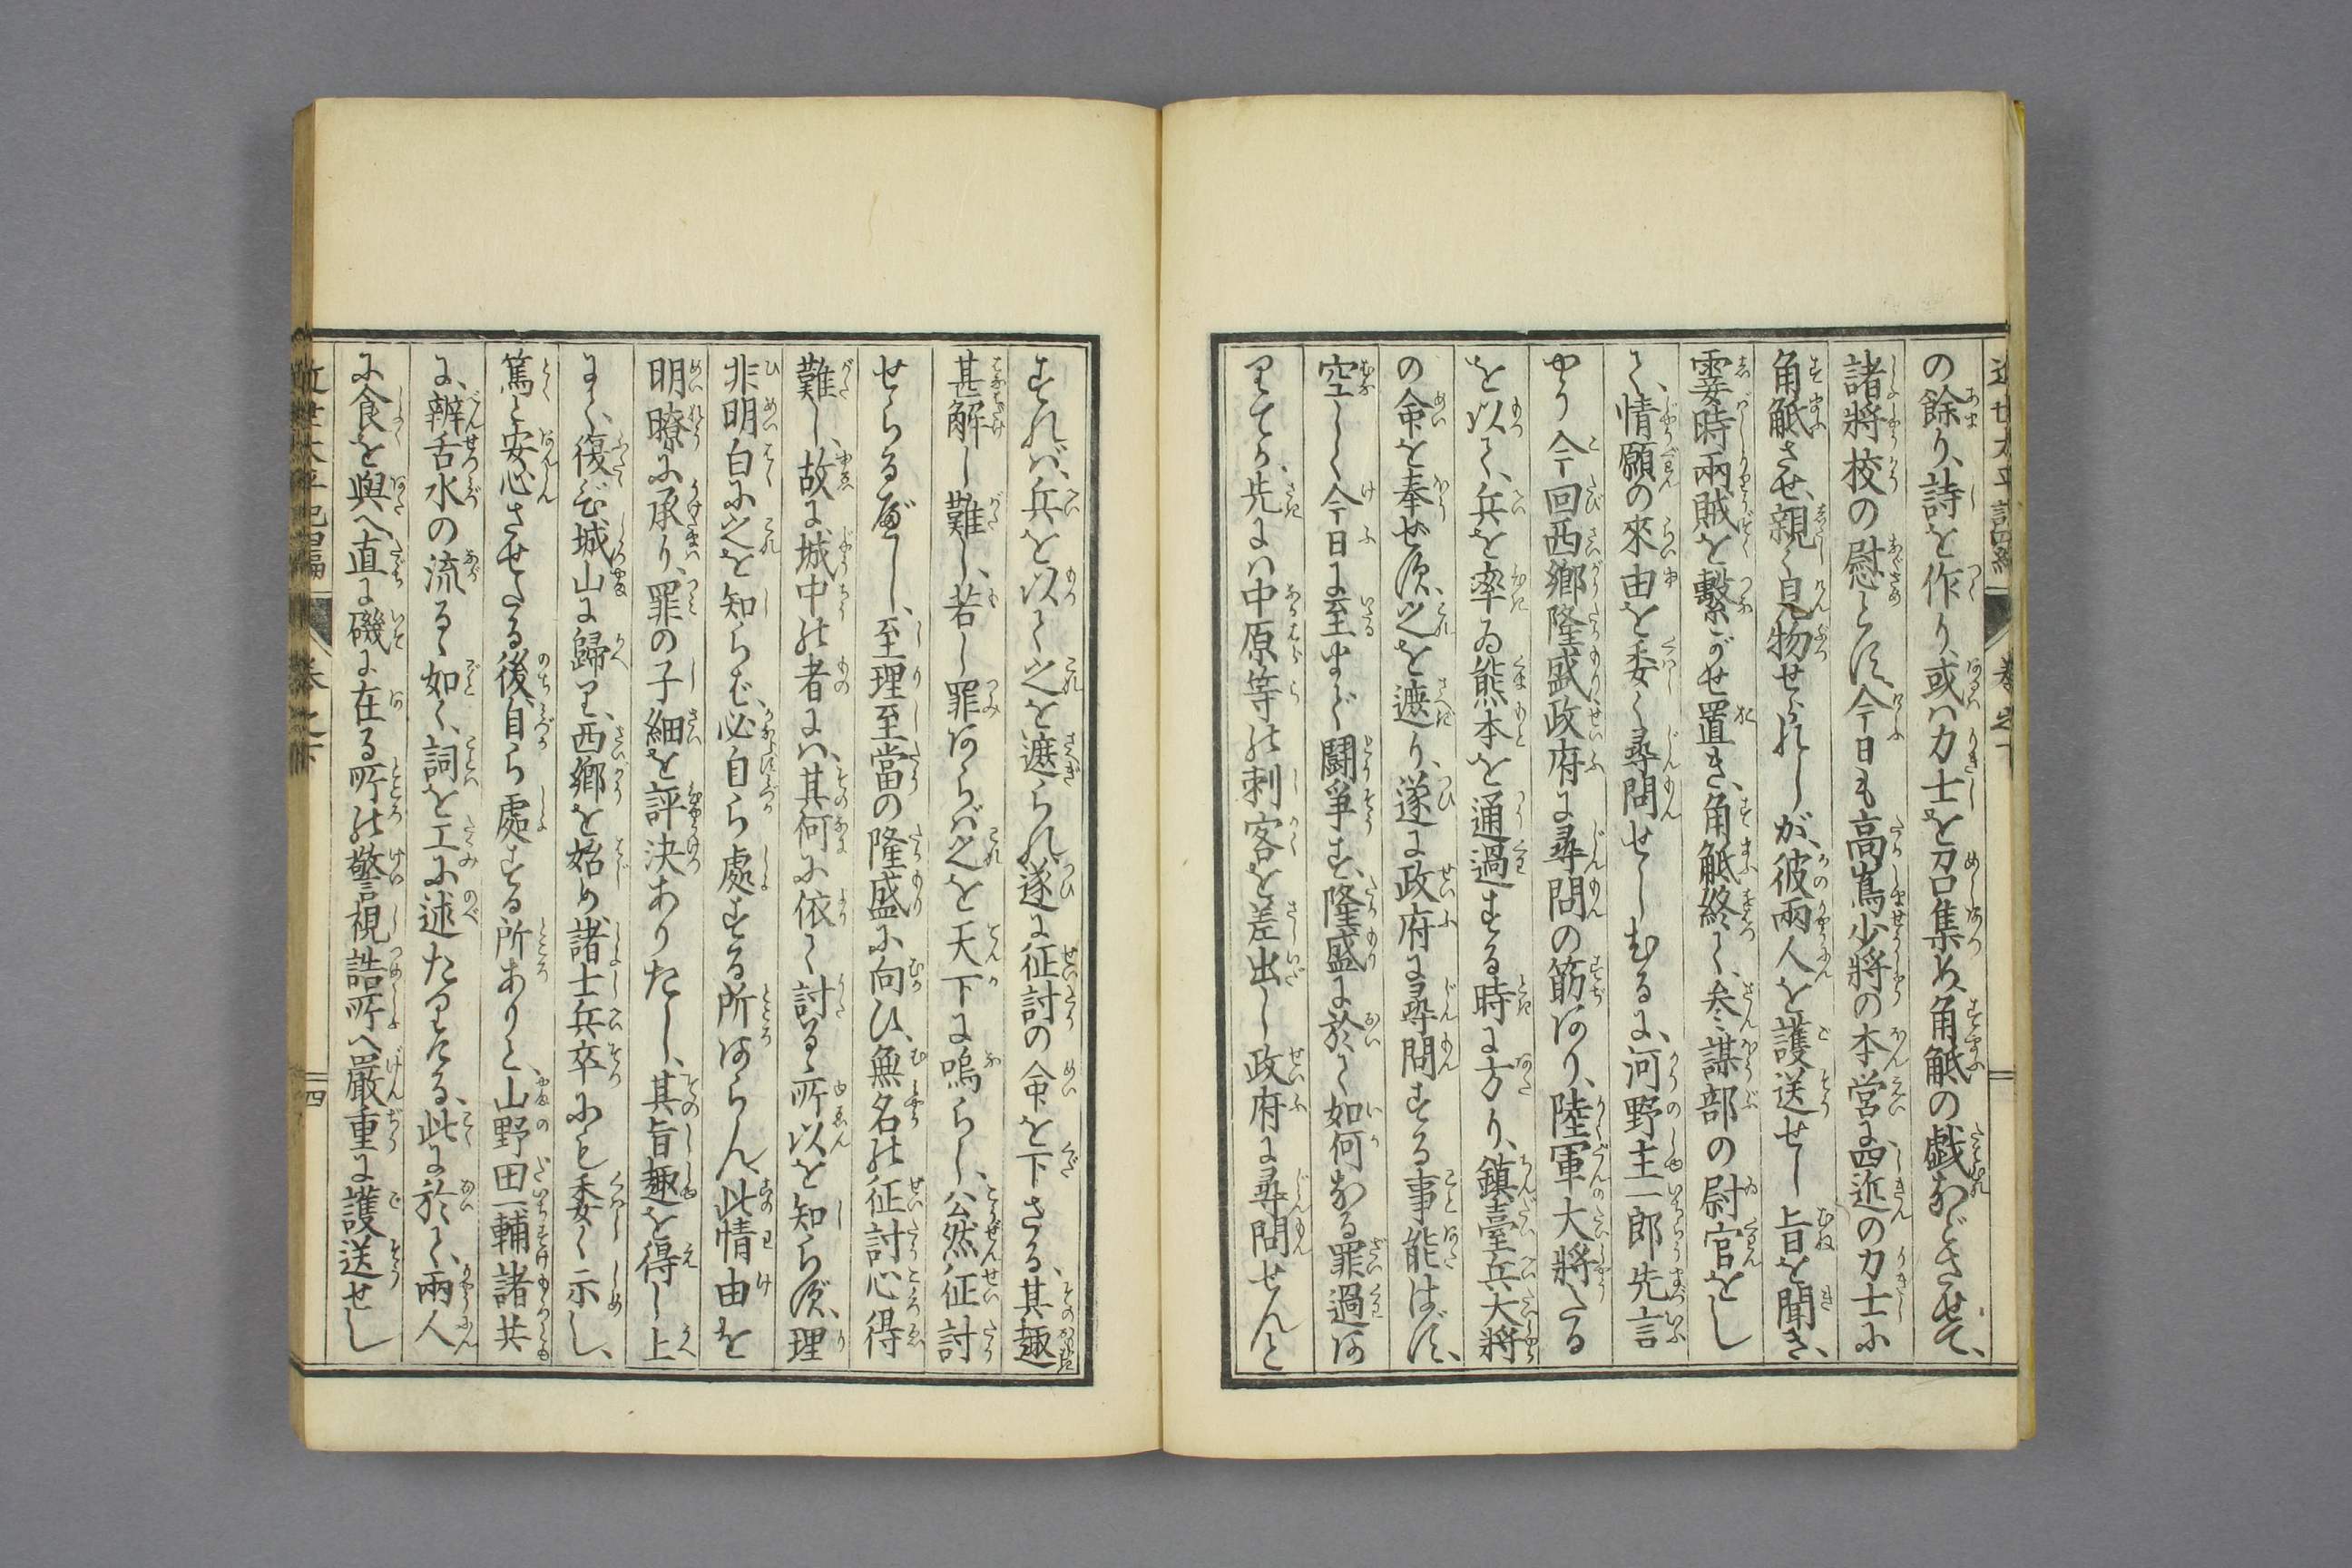 近世太平記四編 巻之下
の餘り、詩を作り、或ハ力士を召集め、角觝の戯などさせて、
諸將校の慰とす、今日も高嶌少將の本営に四近の力士に
角觝させ、親く見物せられしが、彼兩人を護送せし旨を聞き、
霎時兩賊を繋がせ置き、角觝終て、参謀部の尉官をし
て、情願の來由を委く尋問せしむるに、河野主一郎先言
やう今回西郷隆盛政府に尋問の筋あり、陸軍大將たる
を以て、兵を率ゐ熊本を通過する時に方り、鎮臺兵大將
の命を奉ぜず、之を遮り、遂に政府に尋問する事能はず、
空しく今日に至まで闘爭す、隆盛に於て如何なる罪過あ
りてか、先には中原等の刺客を差出し政府に尋問せんと
すれバ、兵を以て之を遮られ遂に征討の命を下さる、其趣
甚解し難し、若し罪あらバ之を天下に鳴らし、公然征討
せらるべし、至理至當の隆盛に向ひ、無名の征討心得
難し、故に城中の者にハ、其何に依て討るゝ所以を知らず、理
非明白に之を知らバ、必自ら處する所あらん、此情由を
明瞭に承り、罪の子細を評決ありたし、其旨趣を得し上
にて、復び城山に歸り、西郷を始め諸士兵卒にも委く示し、
篤と安心させたる後、自ら處する所ありと、山野田一輔諸共
に、辨舌水の流るゝ如く、詞を工に述たりける、此に於て、兩人
に食を與へ直に磯に在る所の警視詰所へ嚴重に護送せし
近世太平記四編 巻之下 四